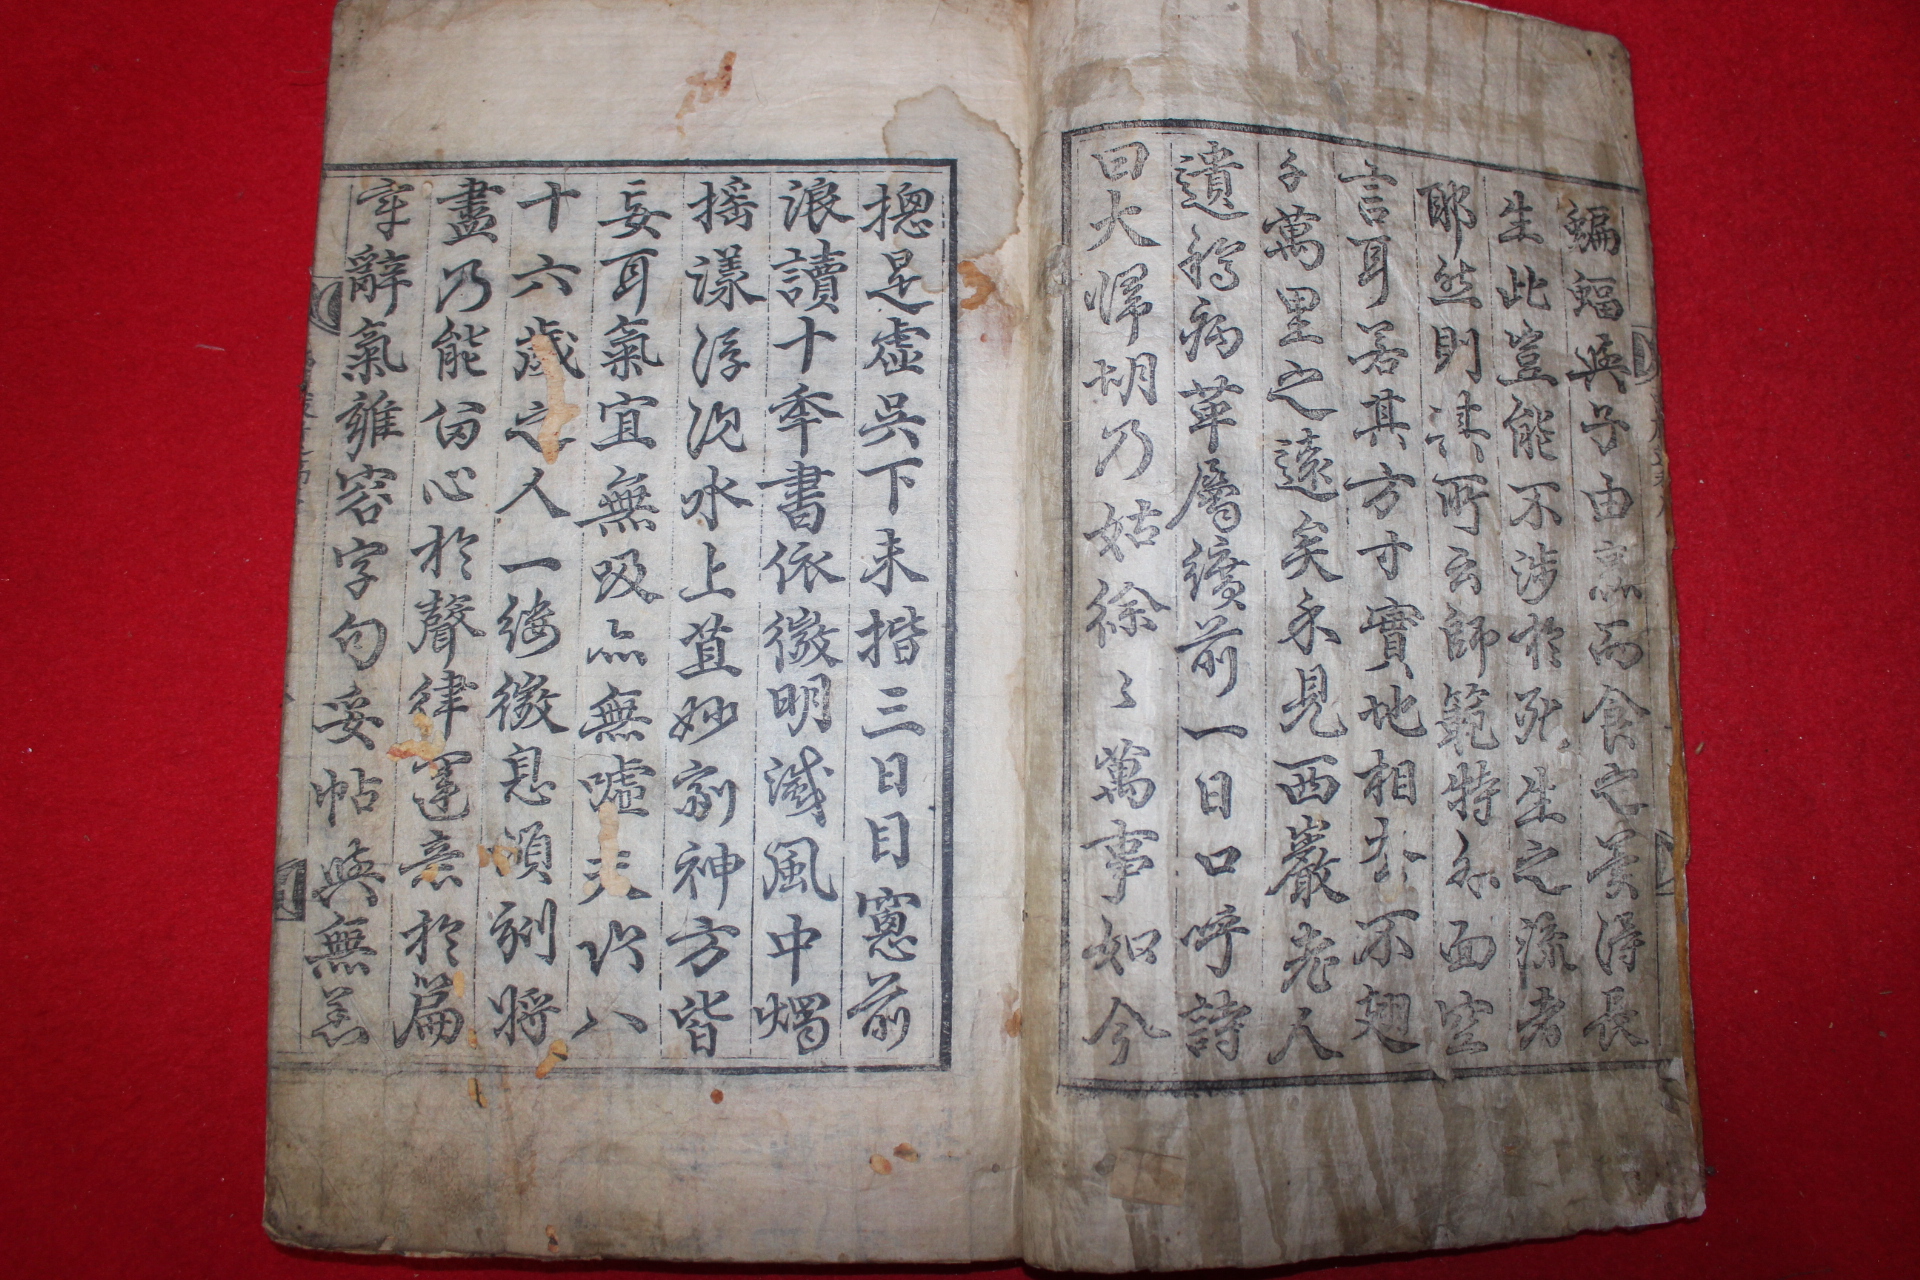 蝙蝠與子由烹而食之美得長
生此豈能不涉於死生之流者
耶然則其所云師範特外面空
言耳若其方寸實地相去不翅
千萬里之遠矣永見西巖老人
遺稿病革屬纊前一日口呼詩
曰大歸胡乃姑徐〻萬事如今
摠是虛吳下未揩三日目窓前
浪讀十年書依微明滅風中燭
搖漾浮沉水上苴妙劑神方皆
妄耳氣宜無吸亦無噓夫以八
十六歲之人一縷微息頃刻將
盡乃能留心於聲律運意於篇
章辭氣雍容字句妥帖與無恙